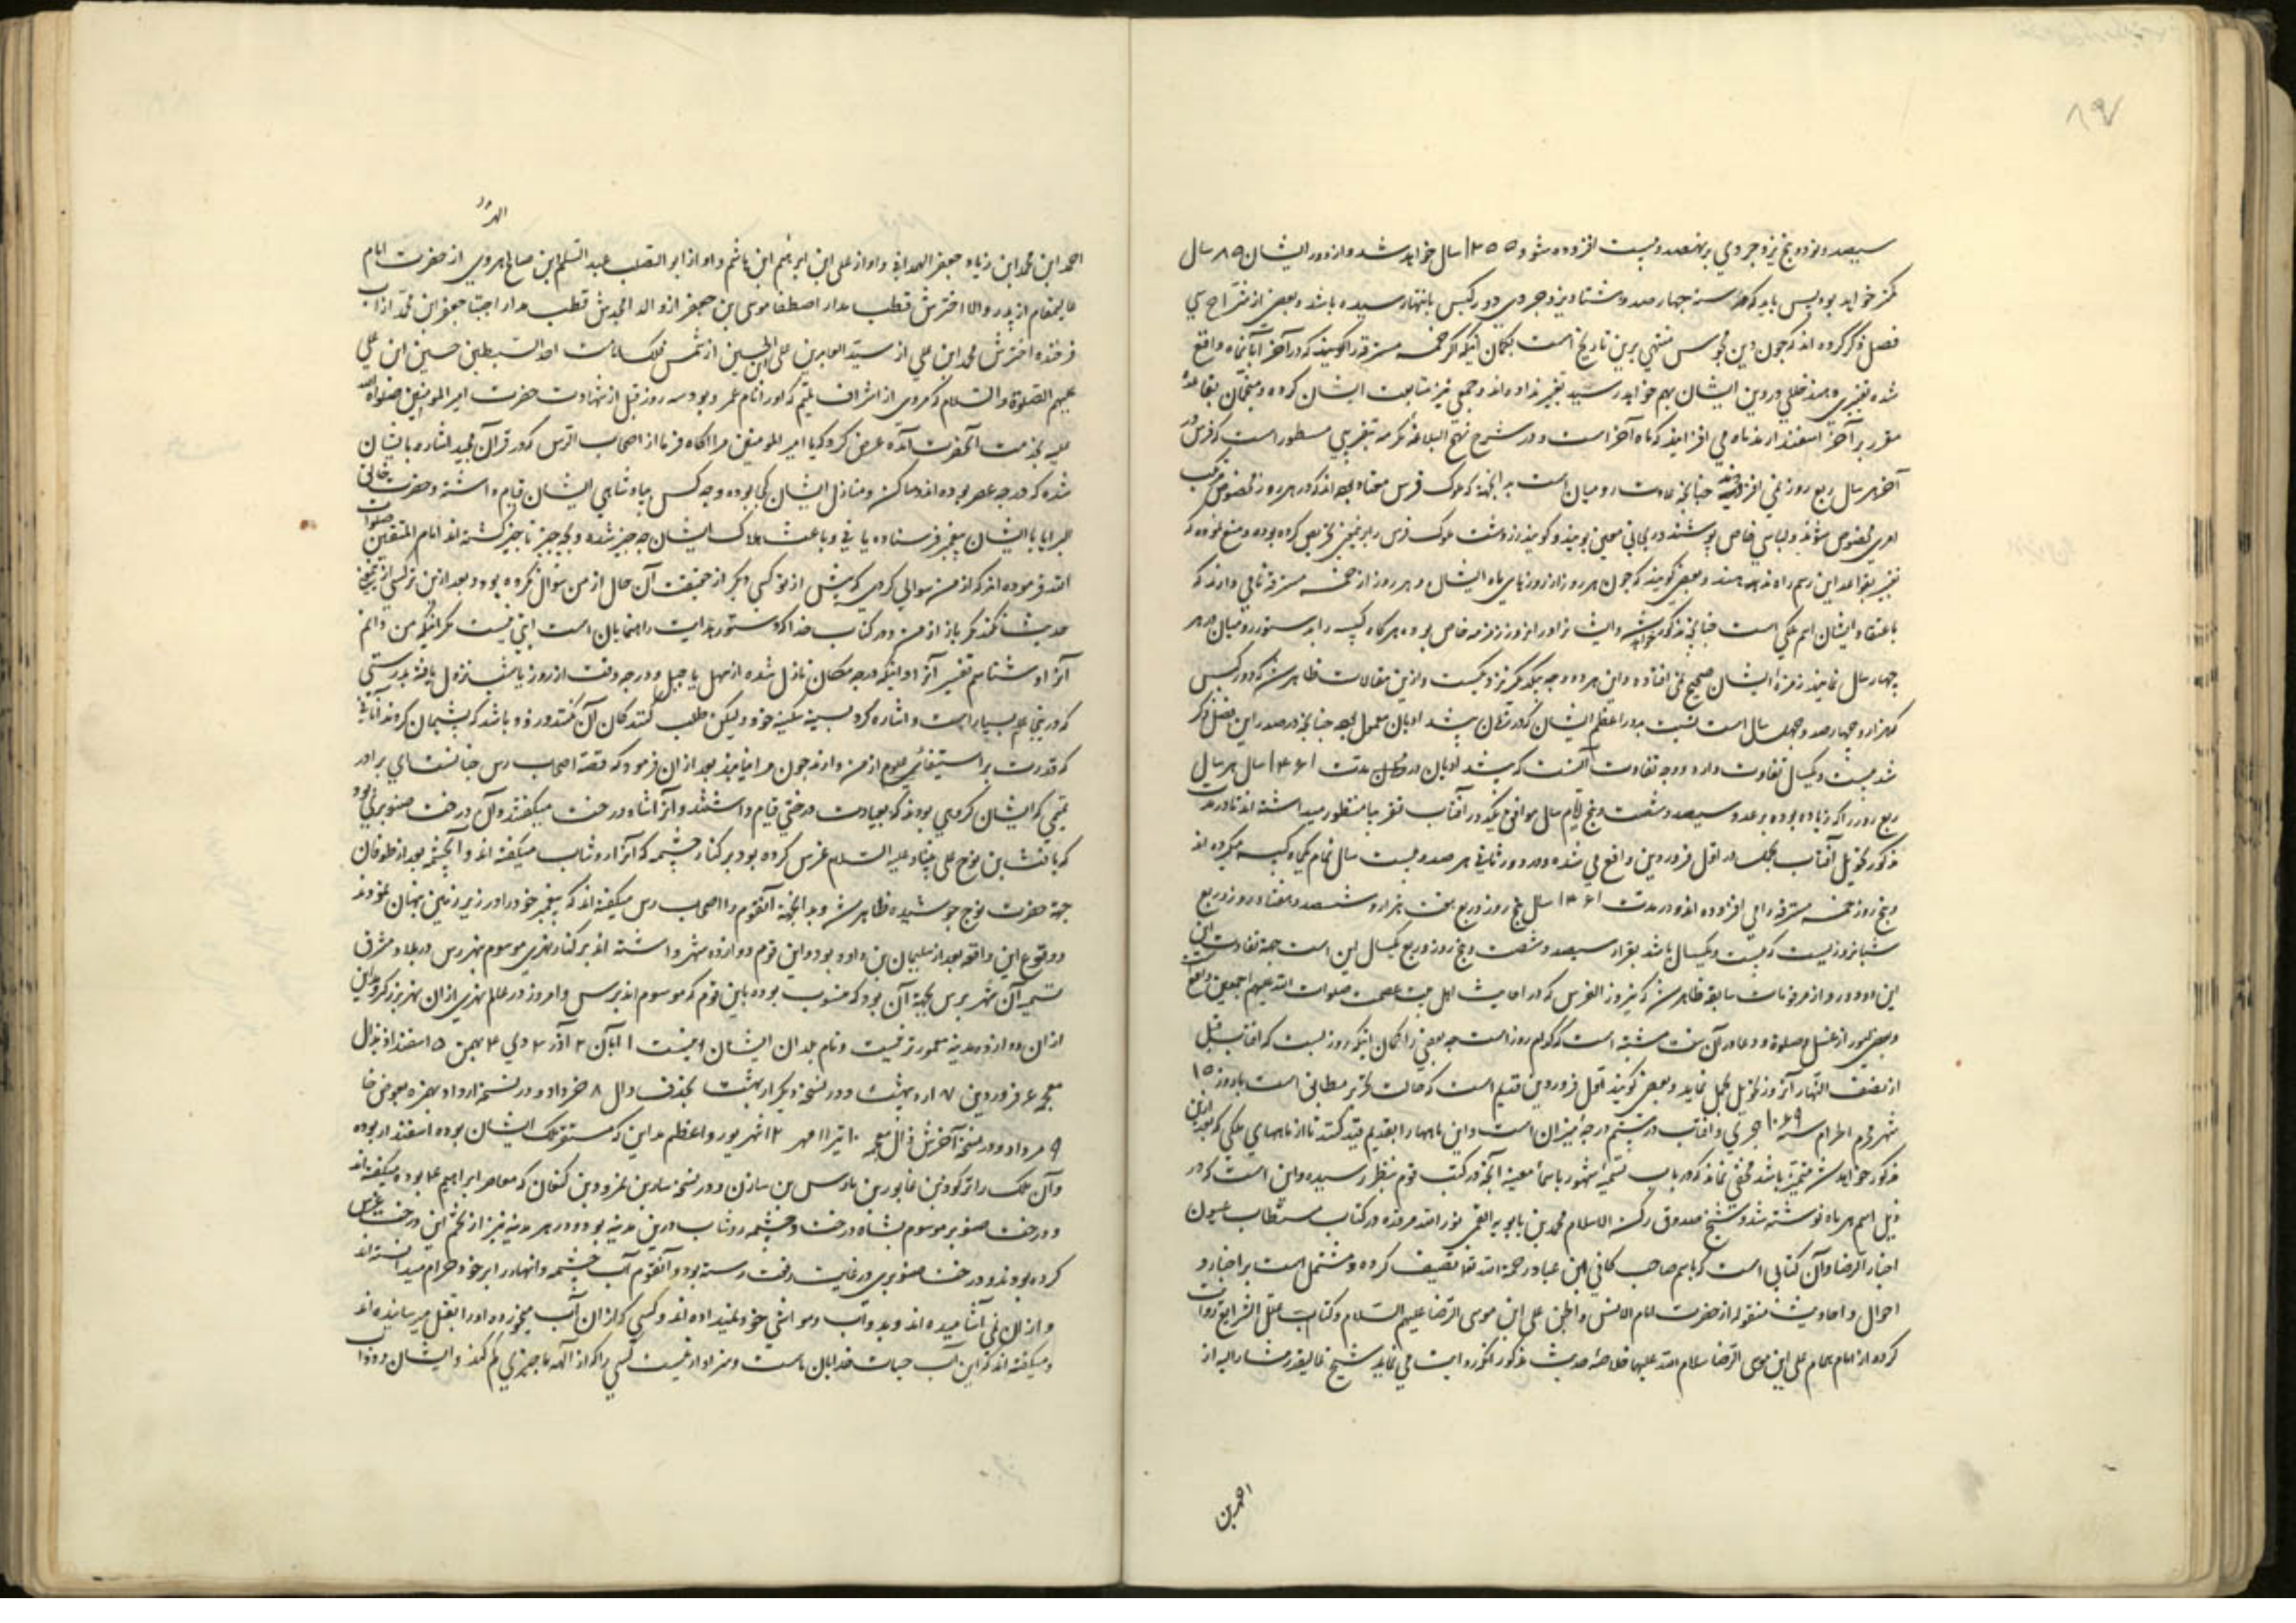 ۸۹۷
سیصد و نود و پنج یزدجردی بر نهصد و بیست افزوده شود ۱۳۵۵ سال خواهد شد و از دور ایشان ۸۵ سال
کمتر خواهد بود پس باید که در سنه چهارصد و هشتاد یزدجردی دور کبس بانتها رسیده باشد و بعضی از شراح سی
فصل ذکر کرده اند که چون دین مجوس منتهی برین تاریخ است بگمان اینکه اگر خمسه مسترقه را که در آخر آبانماه واقع
شده تغییری دهند خللی در دین ایشان بهم خواهد رسید تغییر نداده اند و جمعی نیز متابعت ایشان کرده و منجمان بقاعده
مقرر بر آخر اسفندارمذماه می افزایند که ماه آخر است و در شرح نهج البلاغه مکرمه بتقریبی مسطور است که فرس در
آخر هر سال ربع روز نمی افزایند چنانچه عادت رومیان است بد آنجهة که ملوک فرس معتاد بوده اند که در هر روز مخصوص مرکب
امری مخصوص شوند و لباس خاص پوشند در مکانی معین بویند و گویند زردشت ملوک فرس را بر تمیز تحریص کرده بوده و منع نموده که
تغییر بقواعد این رسم راه ندهند و بعضی گویند که چون هر روز از روزهای ماه ایشان و هر روز از خمسه مسترقه نامی دارند که
باعتقاد ایشان اسم ملکی است چنانچه مذکور خواهد شد و ایشانرا در هر روز زمزمه خاص بوده هرگاه کبیسه را بدستور رومیان در هر
چهار سال نمایند زمزمهٔ ایشان صحیح نمی افتاده و این هر دو وجه بیکدیگر نزدیکست و ازین مقالات ظاهر شد که دور کبس
که هزار و چهارصد و چهل سال است نسبت بدور اعظم ایشان که در زمان پیشدادیان معمول بوده چنانچه در صدر این فصل ذکر
شد بیست و یکسال تفاوت دارد و وجه تفاوت آنست که پیشدادیان در مدت ۱۴۶۱ سال هر سال
ربع روز را که زیاده بوده بر عدد سیصد و شصت و پنج ایام سال موافق یکدور آفتاب تقریبا منظور میداشته اند تا در مدت
مذکور تحویل آفتاب بحمل در اول فروردین واقع می شده و در دور ثانی هر صد و بیست سال تمام یکماه کبیسه میکرده اند
و پنج روز خمسه مسترقه را می افزوده اند و در مدت ۱۴۶۱ سال پنج روز و ربع بخت هزار و ششصد و هفتاد روز و ربع
شبانروزیست که بیست و یکسال باشد بقرار سیصد و شصت و پنج روز و ربع یکسال این است جهة تفاوت این
این دو دور و از مرقومات سابقه ظاهر شد که نیروز الفرس که در احادیث اهل بیت عصمت صلوات الله علیهم اجمعین واقع
و بعضی امور از غسل و صلوة و دعا در آن سخت مشتبه است که کدام روز است چه بعضی را گمان اینکه روز بیست که آفتاب قبل
از نصف النهار آنروز تحویل بحمل نماید و بعضی گویند اول فروردین قدیم است که حالت تحریر مطابق است با روز ۱۵
شهر محرم الحرام سنه ۱۰۶۹ هجری و آفتاب در بیستم درجهٔ میزان است و این ماهها را بقدیم قید کنند تا از ماههای ملکی که بعد از این
مذکور خواهد شد متمیز باشد مخفی نماند که در باب تسمیه شهور باسماء معینه آنچه در کتب قوم بنظر رسیده و این است که در
ذیل اسم هر ماه نوشته شد و شیخ صدوق رکن الاسلام محمد بن بابویه القمی نور الله مرقده در کتاب مستطاب عیون
اخبار الرضا و آن کتابی است که باسم صاحب کافی ابن عباد رحمة الله تعا تصنیف کرده و مشتمل است بر اخبار و
احوال و احادیث منقوله از حضرت امام الانس والجن علی ابن موسی الرضا علیهم السلام و کتاب علل الشرایع روایت
کرده از امام همام علی ابن موسی الرضا سلام الله علیهما خلاصهٔ حدیث مذکور آنکه روایت می نماید شیخ عالیقدر مشار الیه از
احمد بن
الهرو
احمد ابن محمد ابن زیاد جعفر الهمدانی و او از علی ابن ابرهیم ابن هاشم و او از ابو الصلت عبد السلام ابن صالح الهروی از حضرت امام
عالیمقام از پدر والا اخترش قطب مدار اصطفا موسی بن جعفر از والد امجدش قطب مدار اجتبا جعفر ابن محمد از اب
فرخنده اخترش محمد ابن علی از سید العابدین علی ابن الحسین از شمس فلک امامت احد السبطین حسین ابن علی
علیهم الصلوة والسلام که مردی از اشراف تمیم که او را نام عمرو بود سه روز قبل از شهادت حضرت امیر المومنین صلوات الله
علیه بخدمت آنحضرت آمده عرض کرد که یا امیر المومنین مرا آگاه فرما از اصحاب الرس که در قرآن مجید اشاره بایشان
شده که در چه عصر بوده اند و مساکن و منازل ایشان کجا بوده و چه کس بپادشاهی ایشان قیام داشته و حضرت خالق
البرایا بایشان پیغمبر فرستاده یا نی و باعث هلاک ایشان چه چیز شده و بچه چیز ناچیز گشته اند امام المتقین صلوات
الله فرموده اند که از من سوالی کردی که پیش از تو کسی دیگر از حقیقت آن حال از من سوال نکرده بود و بعد از من نیز کسی از من
حدیث نکند مگر باز از من و در کتاب خدا که دستور هدایت راهنمایان است آیتی نیست مگر اینکه من دانم
آنرا و شناسم تفسیر آنرا و اینکه در چه مکان نازل شده از سهل یا جبل و در چه وقت از روز یا شب نزول یافته بدرستی
که در ینجا علم بسیار است و اشاره کرد بسینه سکینه خود و لیکن طلب کنندگان آن کمند و زود باشد که پشیمان گردند آنانی
که قدرت بر استیفای علوم از من دارند چون مرا نیابند بعد از ان فرمود که قصه اصحاب رس چنانست ای برادر
تمیمی که ایشان گروهی بودند که بعبادت درختی قیام داشتند و آنرا شاه درخت میگفتند و آن درخت صنوبری بود
که یافث بن نوح علی نبینا و علیه السلام غرس کرده بود بر کنار چشمه که آنرا روشناب میگفته اند و آنچشمه بعد از طوفان
جهة حضرت نوح جوشیده ظاهر شد و بد آنجهة آنقوم را اصحاب رس میگفته اند که پیغمبر خود را در زیر زمین پنهان نمودند
و وقوع این واقعه بعد از سلیمان بن داود بود و این قوم دوازده شهر داشته اند بر کنار نهری موسوم بنهر رس در بلاد مشرق
تسمیه آن شهر برس بجهة آن بود که منسوب بوده باین قوم که موسوم اند برس و امروز در عالم نهری از ان نهر بزرگتر و مداین
از ان دوازده مدینه معمورتر نیست و نام بلدان ایشان اینست ۱ آبان ۲ آذر ۳ دی ۴ بهمن ۵ اسفنداذ بذال
معجمه ۶ فروردین ۷ اردیبهشت و در نسخه دیگر اربهشت بحذف دال ۸ خرداد و در نسخه ارداد بهمزه بعوض خا
۹ مرداد و در نسخه آخرش ذال معجمه ۱۰ تیر ۱۱ مهر ۱۲ شهریور و اعظم مداین که مستقر ملک ایشان بوده اسفندار بوده
و آن ملک را ترکوذ بن غابور بن یاوش بن سازن و در نسخه سارب نمرود بن کنعان که معاصر ابراهیم ع بوده میگفته اند
و درخت صنوبر موسوم بشاه درخت و چشمه روشناب درین مدینه بوده و در هر مدینه نیز از تخم این درخت غرس
کرده بودند و درخت صنوبری در غایت رفعت رسته بود و آنقوم آب چشمه و انهار را بر خود حرام میدانسته اند
و از ان نمی آشامیده اند و بدواب و مواشی خود نمیداده اند و کسی که از ان آب میخورده او را بقتل میرسانیده اند
و میگفته اند که این آب حیات خدایان ماست و سزاوار نیست کسی را که از آلهه ما چیزی کم کند و ایشان و دواب